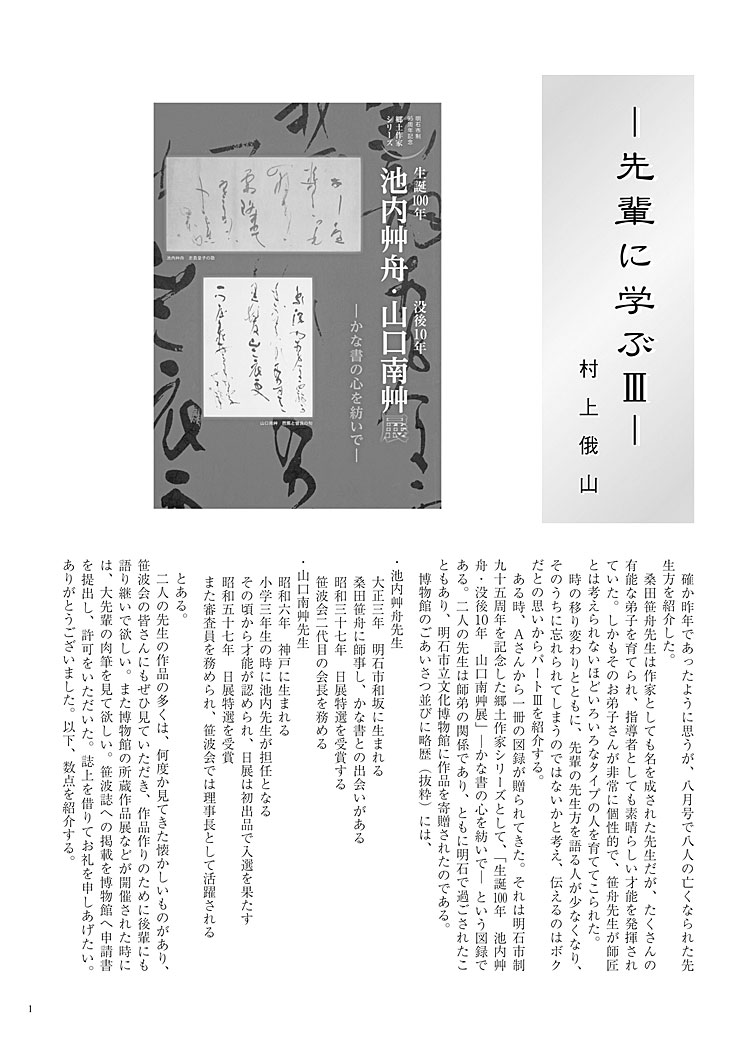 ―先輩に学ぶⅢ―
村上俄山
明石市制
95周年記念
郷土作家
シリーズ
生誕100年
没後10年
池内艸舟・山口南艸展
―かな書の心を紡いで―
池内艸舟　志貴皇子の歌
確か昨年であったように思うが、八月号で八人の亡くなられた先
生方を紹介した。
桑田笹舟先生は作家としても名を成された先生だが、たくさんの
有能な弟子を育てられ、指導者としても素晴らしい才能を発揮され
ていた。しかもそのお弟子さんが非常に個性的で、笹舟先生が師匠
とは考えられないほどいろいろなタイプの人を育ててこられた。
時の移り変わりとともに、先輩の先生方を語る人が少なくなり、
そのうちに忘れられてしまうのではないかと考え、伝えるのはボク
だとの思いからパートⅢを紹介する。
ある時、Aさんから一冊の図録が贈られてきた。それは明石市制
九十五周年を記念した郷土作家シリーズとして、「生誕100年　池内艸
舟・没後10年　山口南艸展」―かな書の心を紡いで―という図録で
ある。二人の先生は師弟の関係であり、ともに明石で過ごされたこ
ともあり、明石市立文化博物館に作品を寄贈されたのである。
博物館のごあいさつ並びに略歴（抜粋）には、
・池内艸舟先生
大正三年　明石市和坂に生まれる
桑田笹舟に師事し、かな書との出会いがある
昭和三十七年　日展特選を受賞する
笹波会二代目の会長を務める
・山口南艸先生
昭和六年　神戸に生まれる
小学三年生の時に池内先生が担任となる
その頃から才能が認められ、日展は初出品で入選を果たす
昭和五十七年　日展特選を受賞
また審査員を務められ、笹波会では理事長として活躍される
とある。
二人の先生の作品の多くは、何度か見てきた懐かしいものがあり、
笹波会の皆さんにもぜひ見ていただき、作品作りのために後輩にも
語り継いで欲しい。また博物館の所蔵作品展などが開催された時に
は、大先輩の肉筆を見て欲しい。笹波誌への掲載を博物館へ申請書
を提出し、許可をいただいた。誌上を借りてお礼を申しあげたい。
ありがとうございました。以下、数点を紹介する。
1